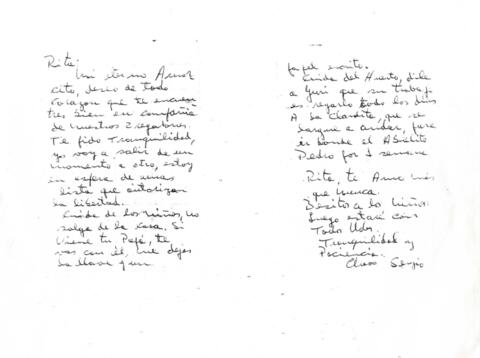 Rita:
Mi eterno Amor
cito, deseo de todo
corazon que te encuen
tres bien en compañia
de nuestros 2 regalones.
Te pido Tranquilidad,
yo voy a salir de un
momento a otro, estoy
en espera de unas
lista que autorizan
la libertad.
Cuida de los niños, no
salga de la casa. Si
viene tu Papá, te
vas con él, me dejas
la llave y un
papel escrito.
Cuida del Huerto, dile
a Yuri que su trabajo
es regarlo todo los dias
A la Claudita, que se
largue a andar, para
ir donde el Abuelito
Pedro por 1 semana
Rita, te Amo más
que nunca.
Besito a los niños.
Luego estaré con
Todos Uds.
Tranquilidad y
Paciencia.
Chao Sergio